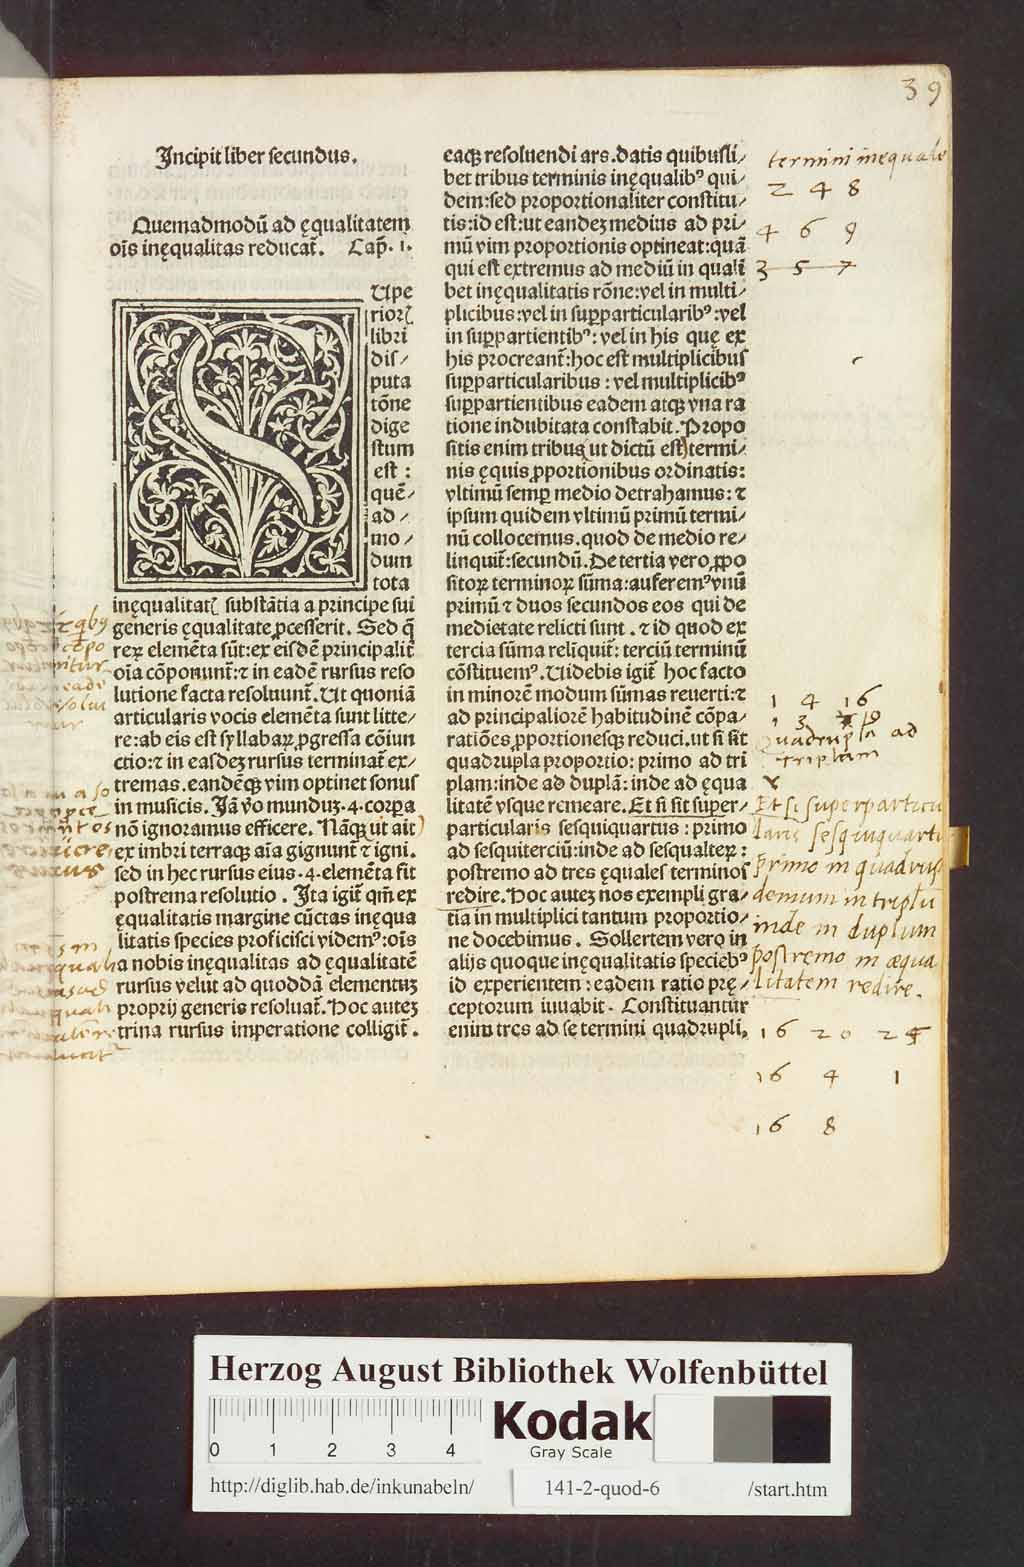 39
Incipit liber secundus.
Quemadmodū ad ęqualitatem
oīs inęqualitas reducat̄. Cap̄. i.
Upe
rioꝝ
libri
dis/
puta
tōne
dige
stum
est :
quē/
ad /
mo /
dum
tota
inęqualitatꝭ substātia a principe sui
generis ęqualitate ꝓcesserit. Sed q̄
reꝝ elemēta sūt: ex eisdē principalit̄
oīa cōponunt̄: ⁊ in eadē rursus reso
lutione facta resoluunt̄. Ut quoniā
articularis vocis elemēta sunt litte/
re: ab eis est syllabaꝝ ꝓgressa cōiun
ctio: ⁊ in easdeꝫ rursus terminat̄ ex/
tremas. eandēqꝫ vim optinet sonus
in musicis. Iā v̊o mundus .4. corpora
nō ignoramus efficere. Nāqꝫ ut ait)
ex imbri terraqꝫ aīa gignunt̄ ⁊ igni.
sed in hec rursus eius .4. elemēta fit
postrema resolutio . Ita igit̄ qm̄ ex
ęqualitatis margine cūctas inęqua
litatis species proficisci videmꝰ: oīs
a nobis inęqualitas ad ęqualitatē
rursus velut ad quoddā elementuꝫ
proprij generis resoluat̄. Hoc auteꝫ
trina rursus imperatione colligit̄ .
eaqꝫ resoluendi ars. datis quibusli/
bet tribus terminis inęqualibꝰ qui/
dem: sed proportionaliter constitu/
tis: id est: ut eandeꝫ medius ad pri/
mū vim proportionis optineat: quā
qui est extremus ad mediū in quali
bet inęqualitatis rōne: vel in multi/
plicibus: vel in sup̄particularibꝰ: vel
in sup̄partientibꝰ: vel in his quę ex
his procreant̄: hoc est multiplicibus
sup̄particularibus : vel multiplicibꝰ
sup̄partientibus eadem atqꝫ vna ra
tione indubitata constabit. Propo
sitis enim tribus ut dictū est) termi/
nis ęquis ꝓportionibus ordinatis:
vltimū semꝑ medio detrahamus: ⁊
ipsum quidem vltimū primū termi/
nū collocemus. quod de medio re/
linquit̄: secundū. De tertia vero ꝓpo
sitoꝝ terminoꝝ sūma: auferemꝰ vnū
primū ⁊ duos secundos eos qui de
medietate relicti sunt . ⁊ id quod ex
tercia sūma reliquit̄: terciū terminū
cōstituemꝰ. Uidebis igit̄ hoc facto
in minorē modum sūmas reuerti: ⁊
ad principaliorē habitudinē cōpa/
ratiōes ꝓportionesqꝫ reduci. ut si sit
quadrupla proportio: primo ad tri
plam: inde ad duplā: inde ad ęqua
litatē vsque remeare. Et si sit super/
particularis sesquiquartus : primo
ad sesquiterciū: inde ad sesqualteꝝ :
postremo ad tres ęquales terminos
redire. Hoc auteꝫ nos exempli gra/
tia in multiplici tantum proportio/
ne docebimus . Sollertem vero in
alijs quoque inęqualitatis speciebꝰ
id experientem : eadem ratio prę/
ceptorum iuuabit . Constituantur
enim tres ad se termini quadrupli.
termini inequale
2 4 8
4 6 9
3 5 7
1 4 16
1 3
quadrupla ad
triplam
Et si superparticu
laris sesquiquart
primo in quadrup
demum in triplū
inde in duplum
postremo in æqua
litatem redire.
16 20 25
16 4 1
16 8
Herzog August Bibliothek Wolfenbüttel
0 1 2 3 4
Kodak
Gray Scale
http://diglib.hab.de/inkunabeln/ 141-2-quod-6 /start.htm